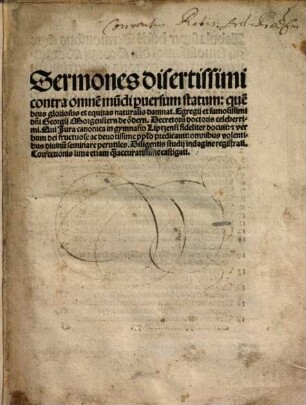 Sermones disertissimi
contra omnē mūdi puersum statum: quē
deus gloriosus et equitas naturalis damnat. Egregii et famosissimi
dñi Georgii Morgenstern de Odern. Decretorū doctoris celeberri-
mi. Qui Jura canonica in gymnasio Liptzensi fideliter docuit: et ver
bum dei fructuose ac deuotissime pplo predicauit: omnibus volenti-
bus diuinū seminiare perutiles. Diligentis studij indagine registrati.
Correctionis lima etiam q̄accuratissime castigati.